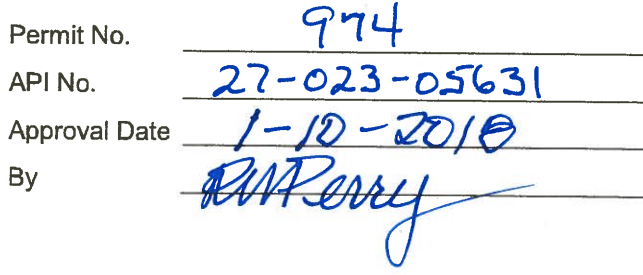 Permit No. 974
API No. 27-023-05631
Approval Date 1-10-2018
By RMPerry